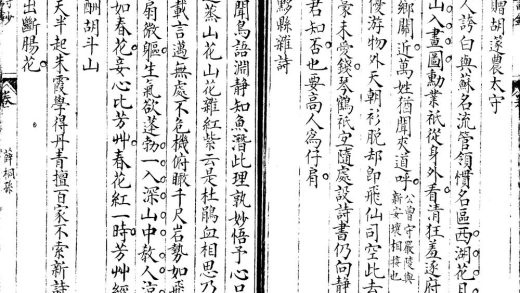 贈胡遂農太守
人誇白與蘇名流管領慣名區西湖花月
山入畫圖勳業祇從身外看清狂羞逐府
鄉關近萬姓猶聞夾道呼公曾守嚴陵與新安壤相接也
優游物外天朝衫脫却卽飛仙司空此去
豪未受錢琴鶴祇宜隨處設詩書仍向靜
君知否也要高人為仔肩
黟縣雜詩
聞鳥語淵靜知魚潛此理孰妙悟予心口
是蒸山花山花雜紅紫云是杜鵑血相思乃
載言邁無處不危機俯瞰千尺岩勢如飛
扇微軀生氣欲蓬勃一入深山中教人涼
如春花妾心比芳艸春花紅一時芳艸經
酬胡斗山
天半起朱霞學得丹青擅百家不索新詩
出斷腸花
卷
薛桐蓀